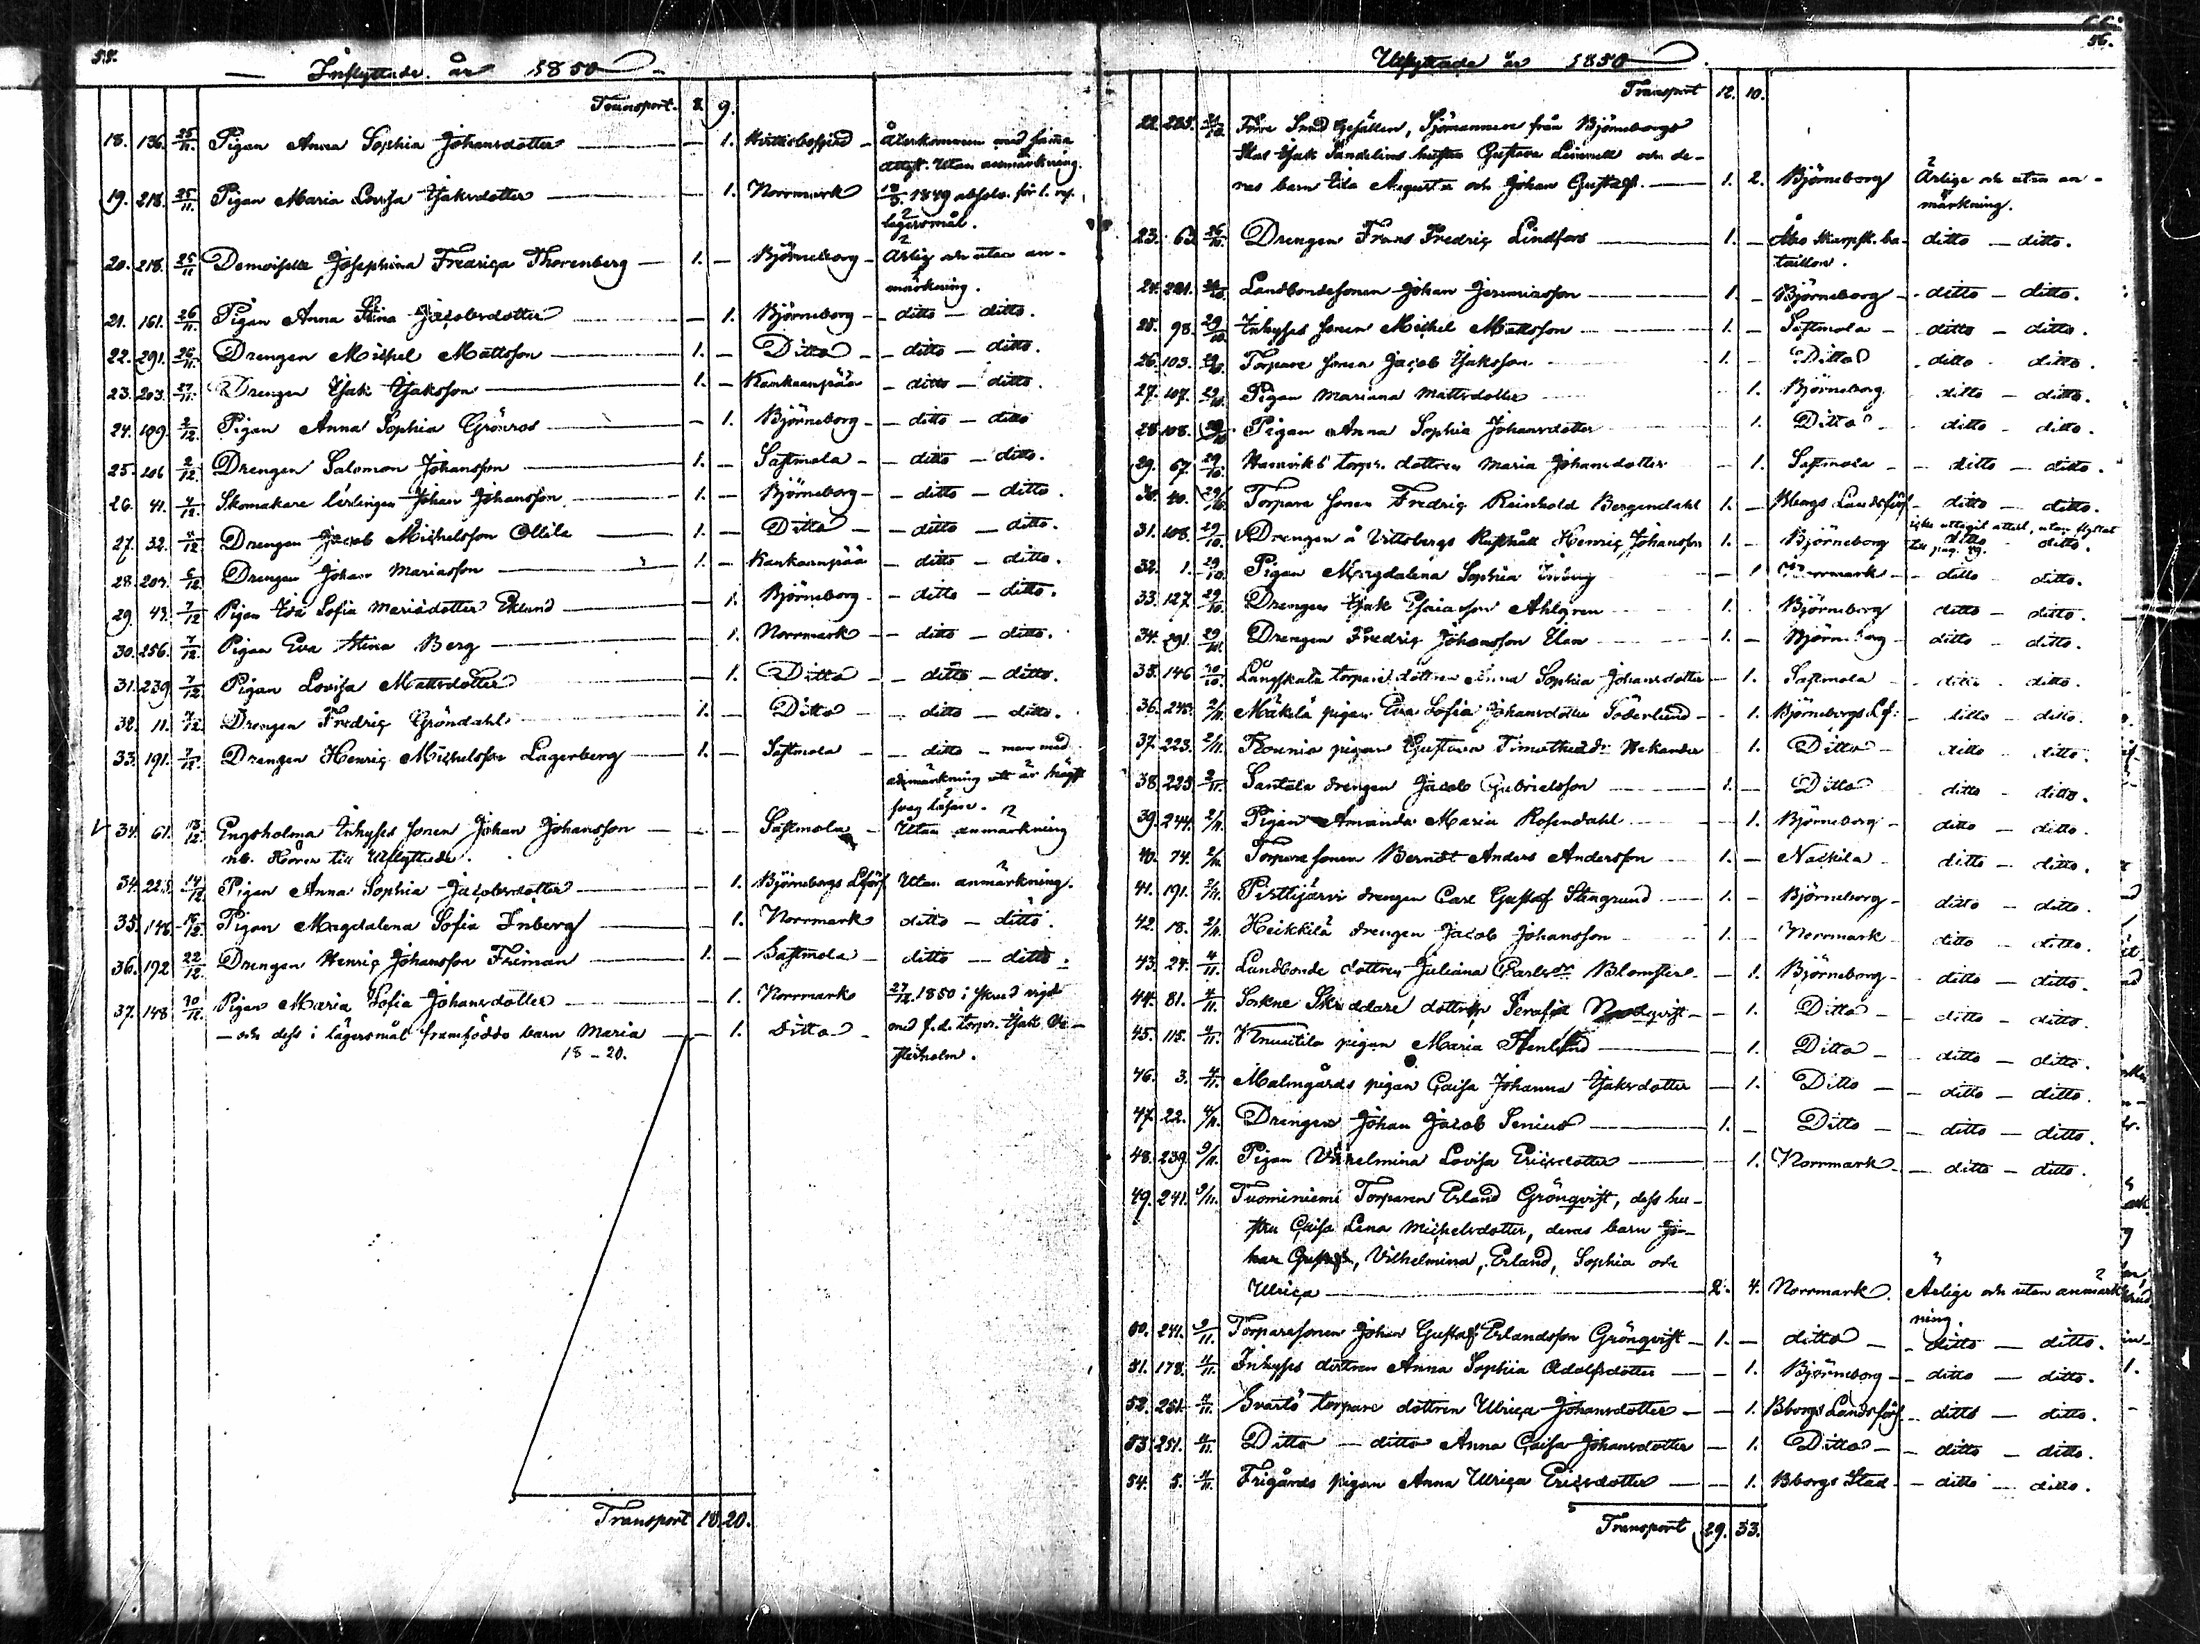 55.
Inflyttade år 1850
Transport. 8. 9.
18. 136. 25/11. Pigan Anna Sophia Johansdotter — 1. Hvittisbofjerd – Återkommen med sama
attest. Utan anmärkning.
19. 218. 25/11. Pigan Maria Lovisa Isaksdotter — 1. Norrmark 1849 absolv. för 1. res.
lägersmål.
20. 218. 25/11 Demoiselle Josephina Fredrica Thorenberg — 1. — Björneborg – Ärlig och utan an-
märkning.
21. 161. 26/11. Pigan Anna Stina Jacobsdotter — 1. Björneborg – ditto – ditto.
22. 291. 26/11. Drengen Michel Mattsson — 1. — Ditto – ditto – ditto.
23. 203. 27/11. Drengen Isak Isaksson — 1. — Kankaanpää – ditto – ditto.
24. 109. 2/12. Pigan Anna Sophia Grönros — 1. Björneborg – ditto – ditto
25. 106 2/12. Drengen Salomon Johansson — 1. — Sastmola – ditto – ditto.
26. 41. 7/12. Skomakare lärlingen Johan Johansson — 1. — Björneborg – ditto – ditto.
27. 32. /12 Drengen Jacob Michelsson Ollila — 1. — Ditto – ditto – ditto.
28. 207. 6/12 Drengen Johan Mariasson — 1. — Kankaanpää – ditto – ditto.
29. 43. 7/12 Pigan Ida Sofia Mariädotter Eklund — 1. Björneborg – ditto – ditto.
30. 256. 7/12. Pigan Eva Stina Berg — 1. Norrmark – ditto – ditto.
31. 239 7/12 Pigan Lovisa Mattsdotter — 1. Ditto – ditto – ditto.
32. 11. 7/12. Drengen Fredric Gröndahl — 1. Ditto – ditto – ditto.
33. 191. 7/12. Drengen Henric Michelsson Lagerberg — 1. Sastmola – ditto – men med
anmärkning att är högst
svag läsare.
34. 61. 13/12. Engsholma Inhyses sonen Johan Johansson — Sastmola – Utan anmärkning
nb. Hörer till Utflyttade.
34. 14/12 Pigan Anna Sophia Jacobsdotter — 1. Björneborgs Lförs Utan anmärkning.
35. 148. /12 Pigan Magdalena Sofia Inberg — 1. Norrmark ditto – ditto.
36. 192 22/12. Drengen Henric Johansson Friman — 1. Sastmola – ditto – ditto.
37. 148 Pigan Maria Sofia Johansdotter — 1. Norrmark 1850 i Skrud vigd
– och dess i lägersmål framfödda barn Maria — 1. Ditto – med f.d. torp. Isak
18 – 20.
Transport 18. 20.
56.
Utflyttade år 1850.
Transport 12. 10.
22. 285. Förre Smed Gesällen, Sjömannen från Björneborgs
Stad Isak Sandelins hustru Gustava och de-
ras barn Ida Augusta och Johan Gustaf. — 1. 2. Björneborg Ärlige och utan an-
märkning.
23. 63. 26/10. Drengen Frans Fredric Lindfors — 1. — Åbo Skarpsk. ba- ditto – ditto.
taillon.
24. 221. Landbondesonen Johan Jeremiasson — 1. – Björneborg – ditto – ditto.
25. 98. 29/10. Inhyses sonen Michel Mattsson — 1. – Sastmola – ditto – ditto.
26. 103. Torpare sonen Jacob Isaksson 1. – Ditto ditto ditto.
27. 107. 29/10. Pigan Mariana Mattsdotter 1. Björneborg ditto – ditto.
28. 108. Pigan Anna Sophia Johansdotter 1. Ditto – ditto – ditto.
29. 67. 29/10. torpr. dottren Maria Johansdotter – 1. Sastmola – ditto – ditto.
30. 40. 29/10. Torpare sonen Fredric Rainhold Bergendahl 1. – Bborgs Landsförs ditto – ditto.
icke uttagit attest, utan flyttat
31. 108. 29/10. Drengen å Vittsbergs Rusthåll Henric Johansson 1. – Björneborg till pag. ditto ditto.
32. 1. 29/10. Pigan Magdalena Sophia Inberg – 1 Norrmark – ditto ditto.
33. 127. 29/10. Drengen Isak Esaiasson Ahlgren 1. Björneborg ditto – ditto.
34. 291. 29/10. Drengen Fredric Johansson Ulan 1. – Björneborg – ditto – ditto.
35. 146 30/10. Långskata torpare dottren Anna Sophia Johansdotter – 1. Sastmola – ditto – ditto.
36. 243. 2/11. Mäkelä pigan Eva Sofia Johansdotter Söderlund – 1. Björneborgs Lf. – ditto – ditto.
37. 223. 2/11. pigan Gustava Timotheid: Hekander 1. Ditto – ditto ditto.
38. 223 2/11. Santala drengen Jacob Gabrielsson 1. – Ditto – ditto – ditto.
39. 244. 2/11. Pigan Amanda Maria Rosendahl 1. Björneborg – ditto – ditto.
40. 74. 2/11. Torpare sonen Berndt Anders Andersson 1. – Nackila – ditto – ditto.
41. 191. 2/11. Pirttijärvi drengen Carl Gustaf Stengrund 1. – Björneborg – ditto – ditto.
42. 18. 2/11. Heikkilä drengen Jacob Johansson 1. – Norrmark – ditto – ditto.
43. 24. 4/11. Landbonde dottren Juliana Carlsdr Blomster – 1. Björneborg – ditto – ditto.
44. 81. 4/11. Sockne Skräddare dottren Serafia Nordqvist – 1. Ditto – ditto – ditto.
45. 115. 4/11. Knuutila pigan Maria Stenlund — 1. Ditto – ditto – ditto.
46. 3. 4/11. Malmgårds pigan Caisa Johanna Isaksdotter — 1. Ditto – ditto – ditto.
47. 22. 4/11. Drengen Johan Jacob Senius — 1. – Ditto – ditto – ditto.
48. 239. 9/11. Pigan Vilhelmina Lovisa Ericsdotter — 1. Norrmark – ditto – ditto.
49. 241. 9/11. Tuominiemi Torparen Erland Grönqvist, dess hu-
stru Caisa Lena Michelsdotter, deras barn Jo-
han Gustaf, Vilhelmina, Erland, Sophia och
Ulrica — 2. 4. Norrmark. Ärlige och utan anmärk-
ning.
50. 241. 9/11. Torparesonen Johan Gustaf Erlandsson Grönqvist – 1. – ditto – ditto – ditto.
51. 178. 4/11. Inhyses dottren Anna Sophia Adolfsdotter — 1. Björneborg – ditto – ditto.
52. 251. 4/11. Svartö torpare dottren Ulrica Johansdotter — 1. Bborgs Landsförs – ditto – ditto.
53. 251. 4/11. Ditto – ditto Anna Caisa Johansdotter — 1. Ditto – ditto – ditto.
54. 5. 4/11. Frigårds pigan Anna Ulrica Ericsdotter — 1. Bborgs Stad – ditto – ditto.
Transport 29. 33.